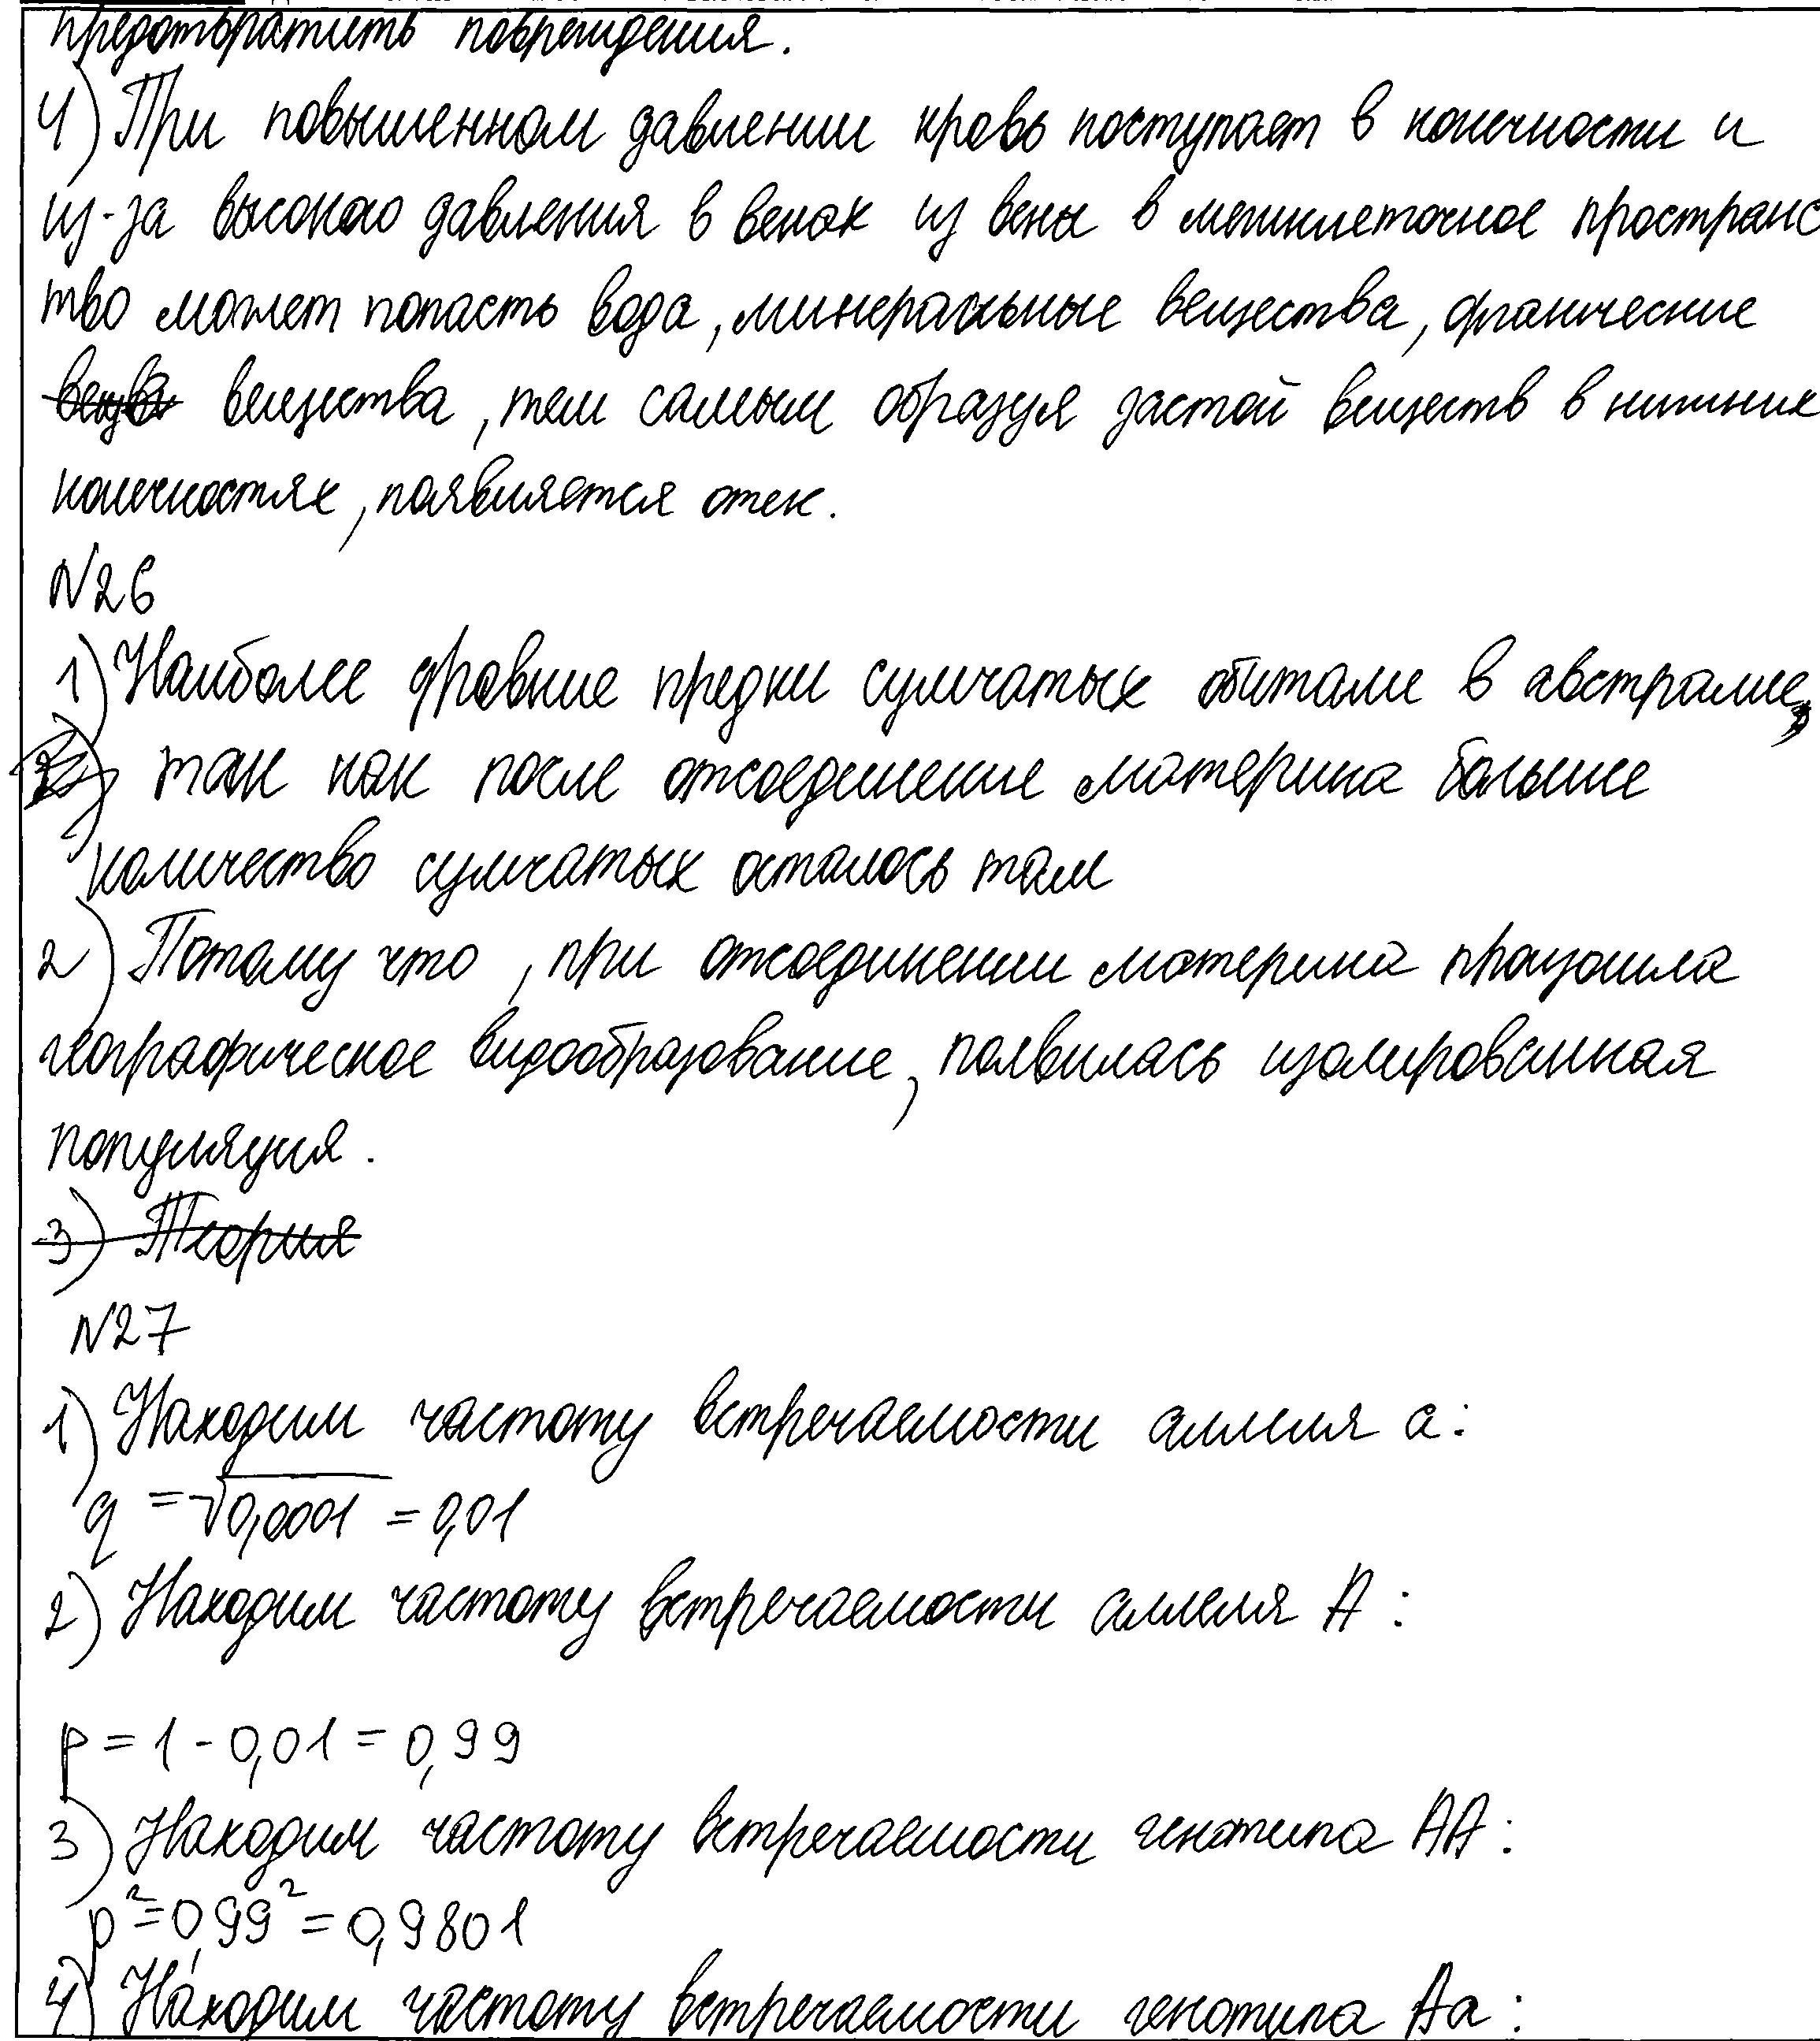 предотвратить повреждения.
4) При повышенном давлении кровь поступает в конечности и
из-за высокого давления в венах из вены в межклеточное пространс
тво может попасть вода, минеральные вещества, органические
вещества, тем самым образуя застой веществ в нижних
конечностях, появляется отек.
№26
1) Наиболее древние предки сумчатых обитали в австралие,
так как после отсоединение материка больше
количество сумчатых осталось там
2) Потому что, при отсоединении материка произошла
географическое видообразование, появилась изолированная
популяция.
3) Теория
№27
1) Находим частоту встречаемости аллеля a:
q = √0,0001 = 0,01
2) Находим частоту встречаемости аллеля A:
p = 1 - 0,01 = 0,99
3) Находим частоту встречаемости генотипа AA:
p² = 0,99² = 0,9801
4) Находим частоту встречаемости генотипа Aa: